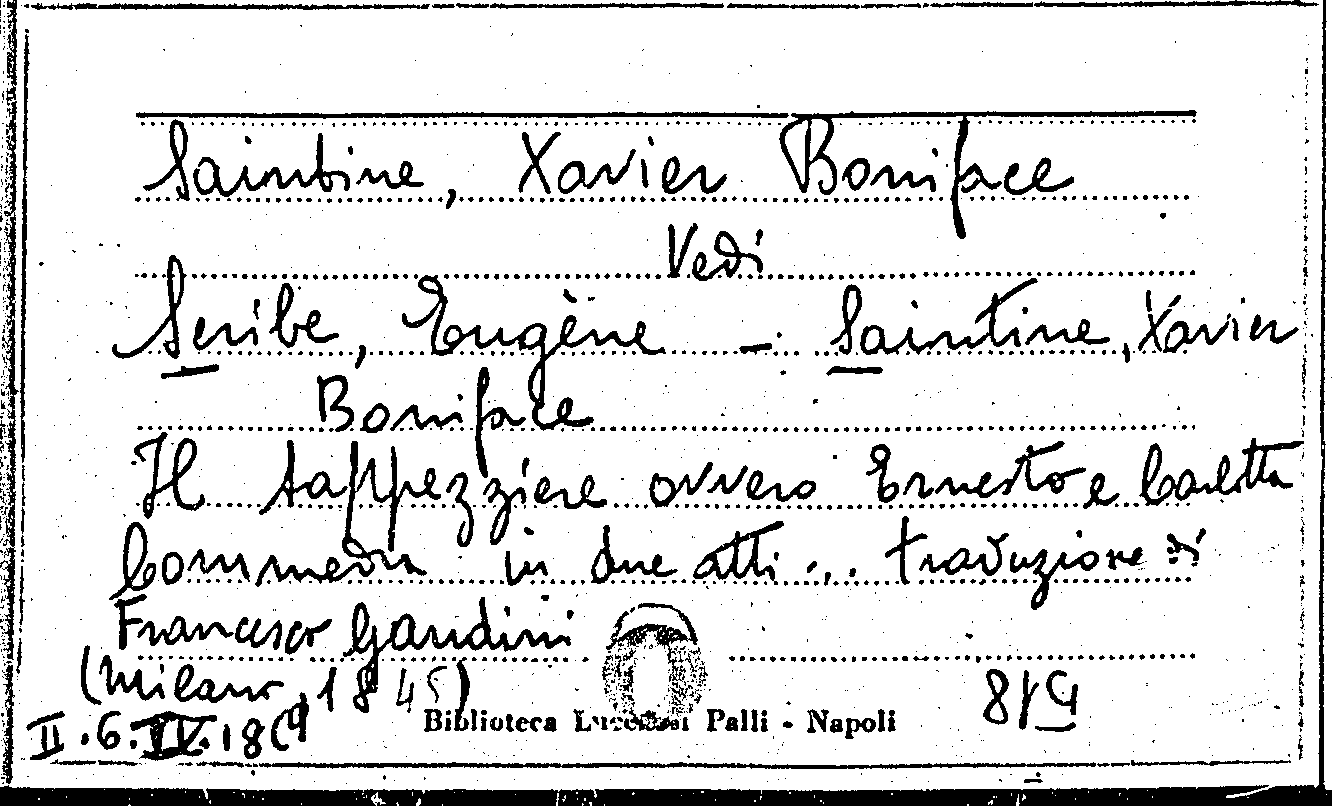 Saintine, Xavier Boniface
Vedi
Scribe, Eugène – Saintine, Xavier
Boniface
Il tappezziere ovvero Ernesto e Carlotta
Commedia in due atti ... traduzione di
Francesco Gandini
(Milano, 1845)
Biblioteca Lucchesi Palli - Napoli
II.6.IV.18(9